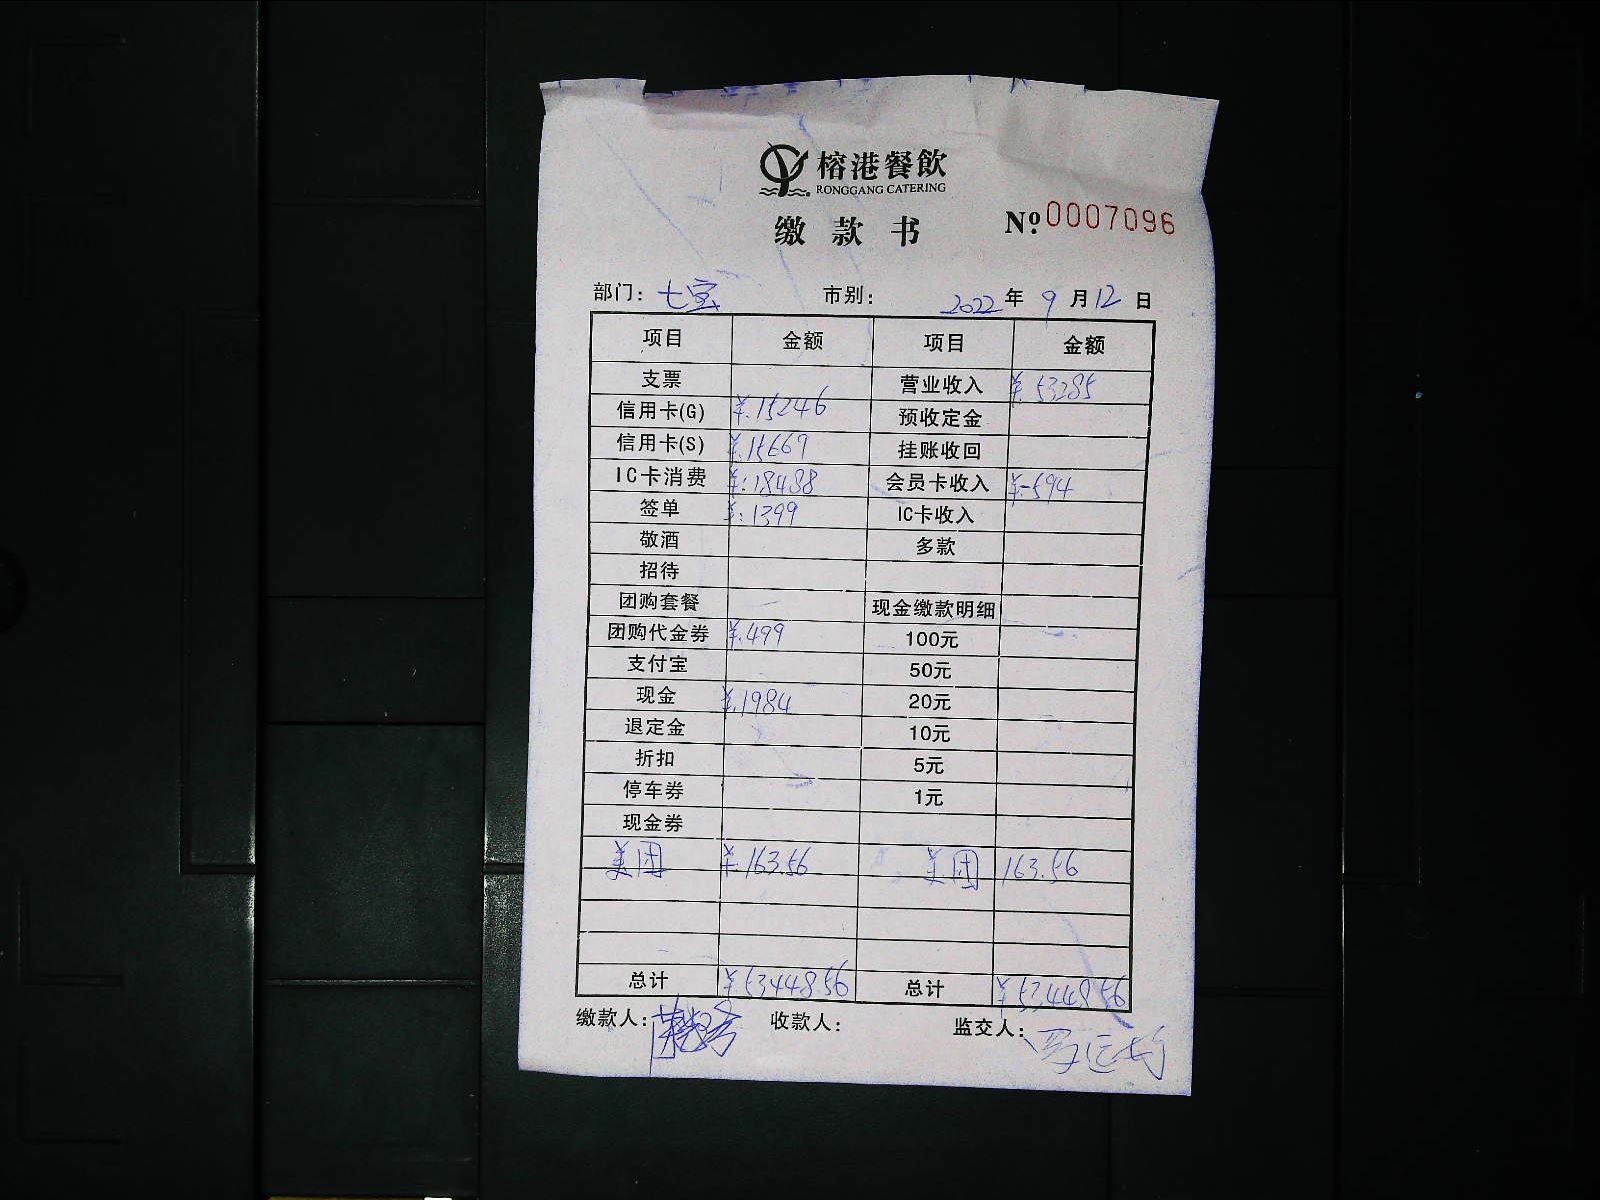 榕港餐飲
RONGGANG CATERING
缴款书 Nº 0007096
部门：七宝 市别： 2022年9月12日
项目 金额 项目 金额
支票 营业收入 ¥.53285
信用卡(G) ¥.15246 预收定金
信用卡(S) ¥.15669 挂账收回
IC卡消费 ¥:18488 会员卡收入 ¥-594
签单 ¥:1399 IC卡收入
敬酒 多款
招待
团购套餐 现金缴款明细
团购代金券 ¥.499 100元
支付宝 50元
现金 ¥.1984 20元
退定金 10元
折扣 5元
停车券 1元
现金券
美团 ¥.163.56 美团 163.56
总计 ¥53448.56 总计 ¥53448.56
缴款人： 收款人： 监交人：